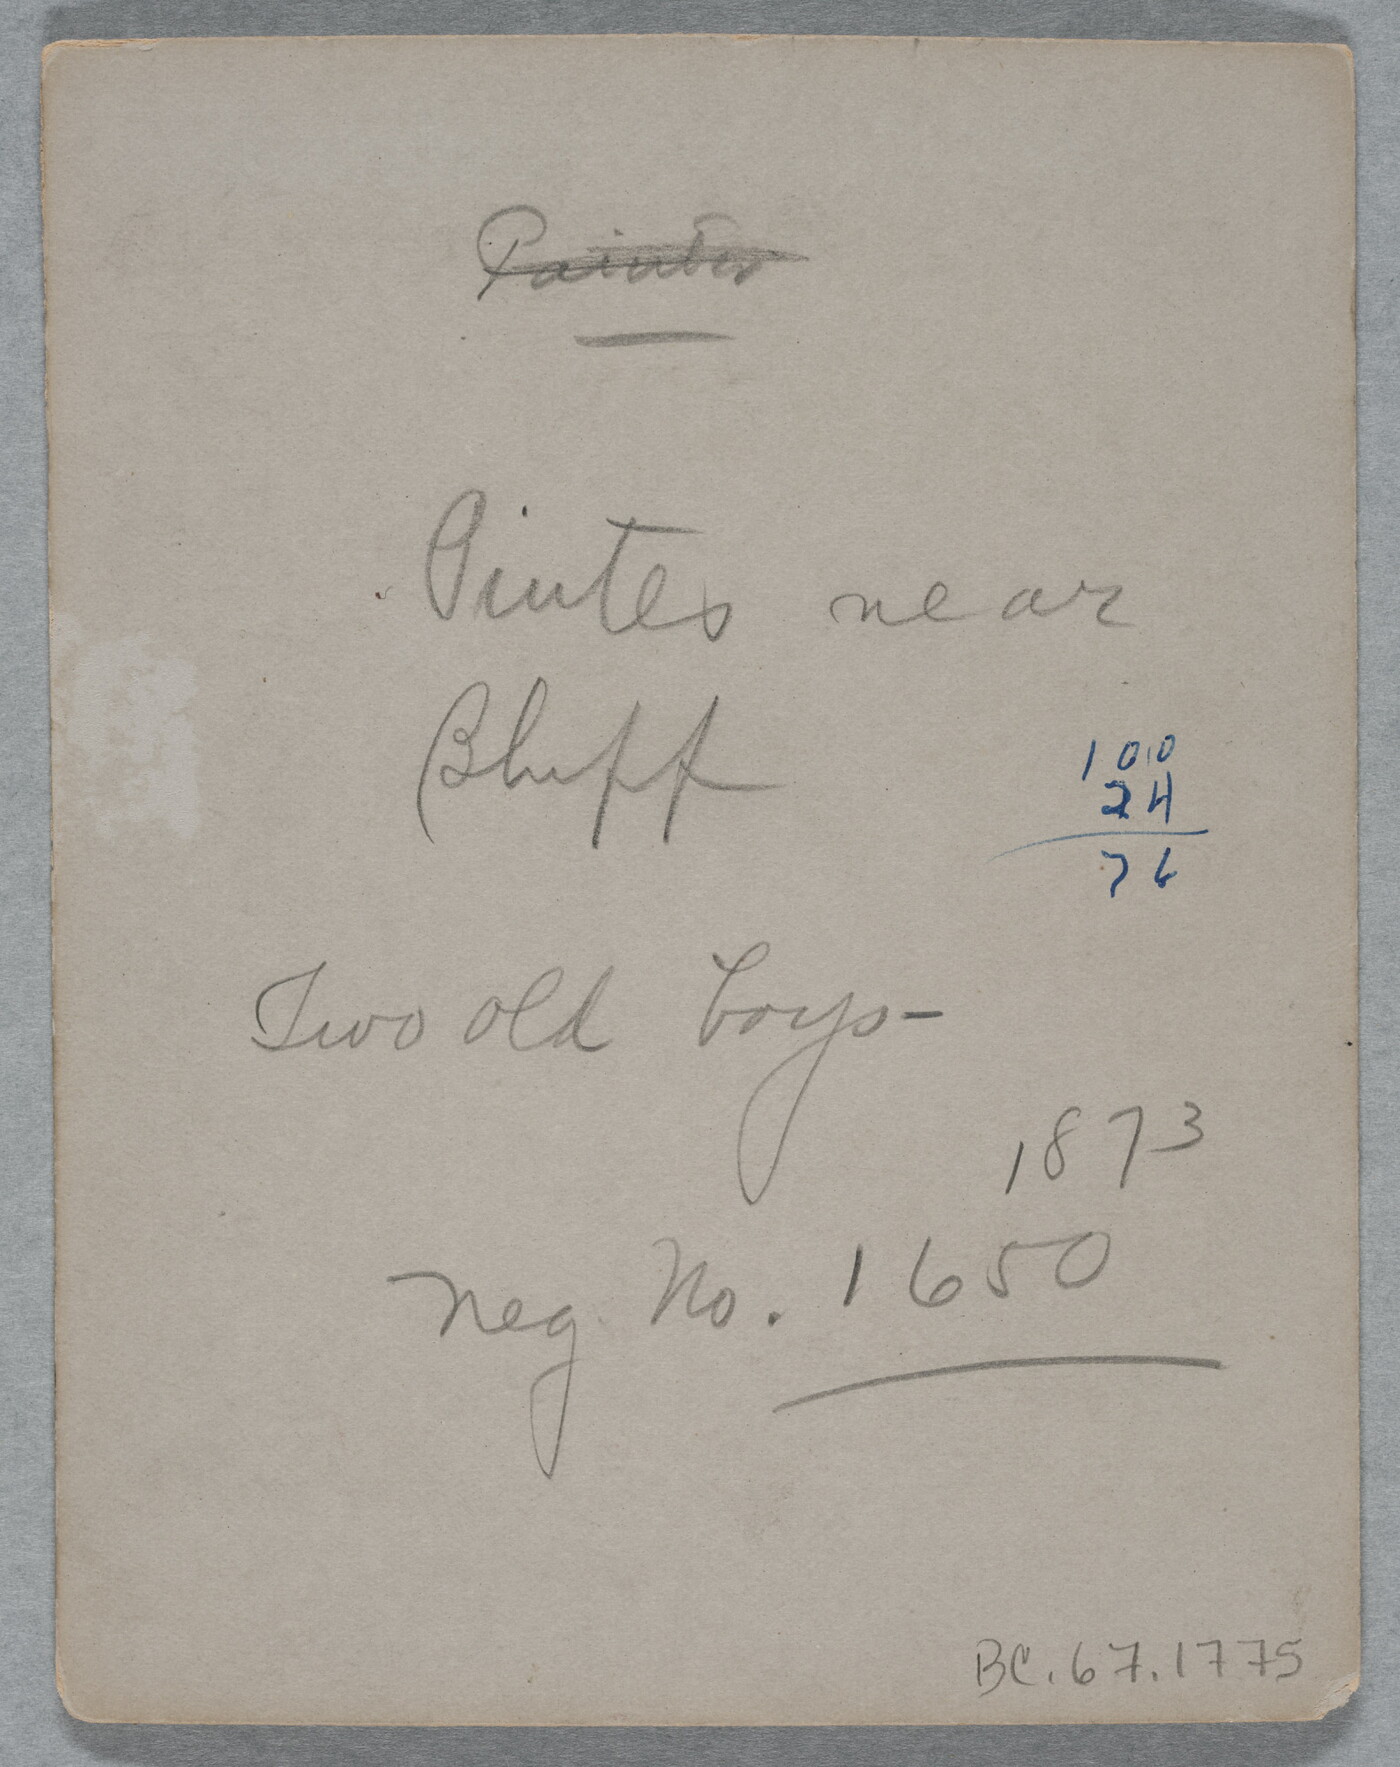 Piutes near
Bluff
100
24
76
Two old boys-
1873
Neg. No. 1650
BC.67.1775